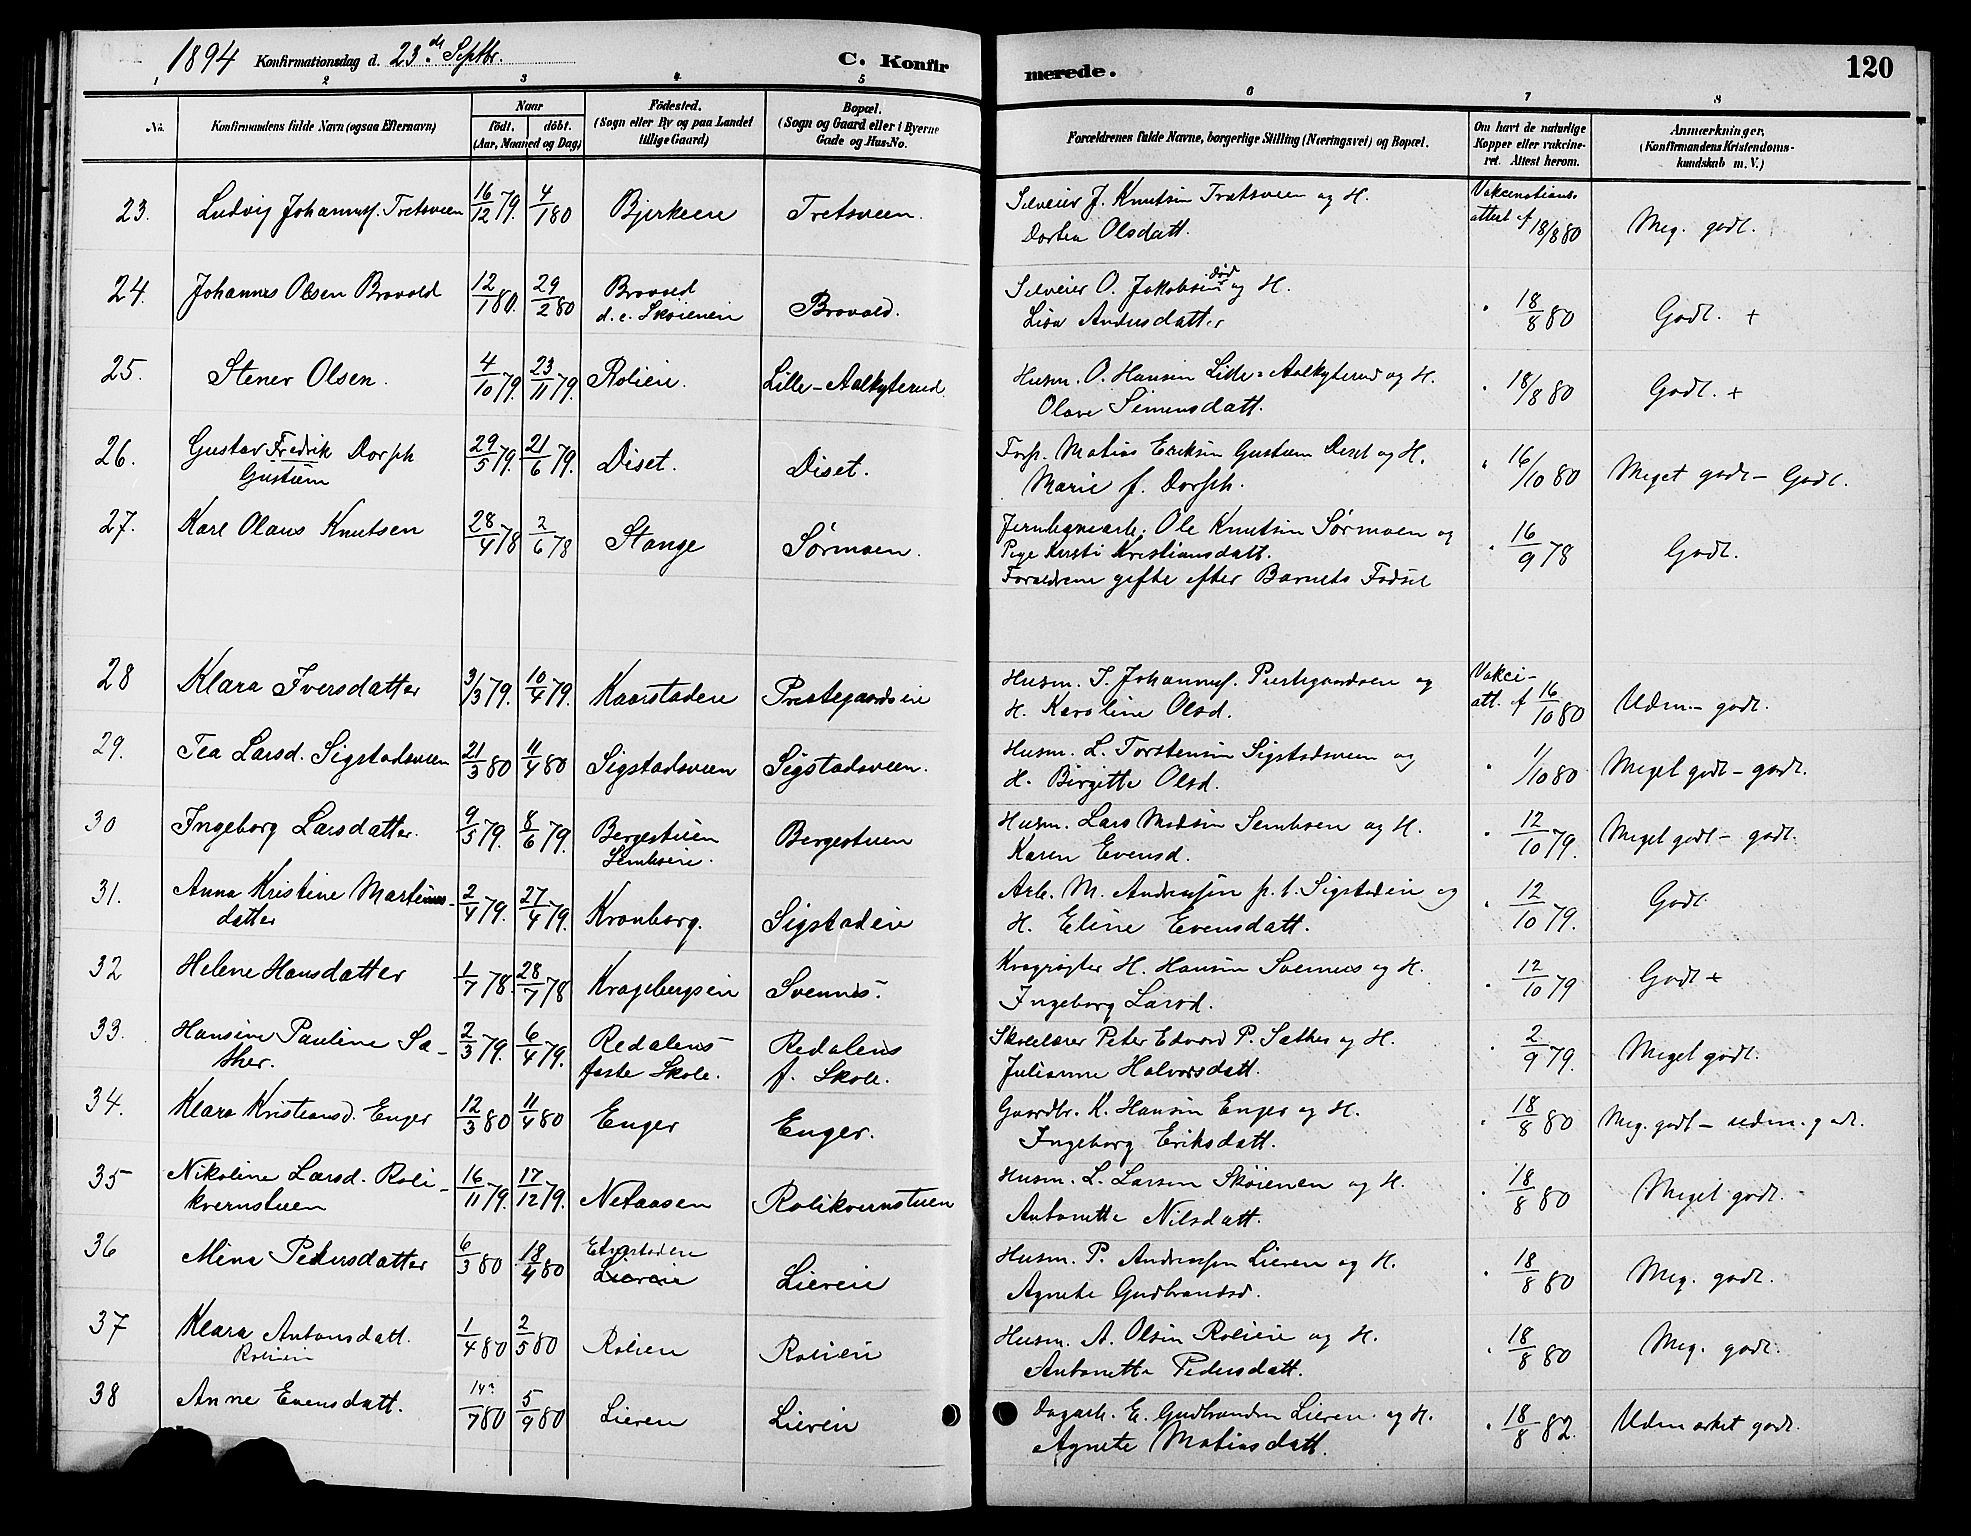 1894 Konfirmationsdag d. 23.de Septbr. C. Konfir merede. 120
1 2 3 4 5 6 7 8
No.
Konfirmandens fulde Navn (ogsaa Efternavn)
Naar
født. døbt.
(Aar, Maaned og Dag)
Fødested.
(Sogn eller By og paa Landet
tillige Gaard)
Bopæl.
(Sogn og Gaard eller i Byerne
Gade og Hus-No.
Forældrenes fulde Navne, borgerlige Stilling (Næringsvei) og Bopæl.
Om havt de naturlige
Kopper eller vakcine-
ret. Attest herom.
Anmærkninger,
(Konfirmandens Kristendoms-
kundskab m. V.)
23. Ludvig Johannes. Tretsveen 16/12 79. 4/1 80 Bjerkeeie Tretsveen. Silveier J. Knutsen Trætsveen og H.
Dortea Olsdatt. Vakcinations-
attest af 18/8 80 Meg. godt.
24. Johannes Olsen Brovold 12/1 80. 29/2 80 Brovold
d. e. Skøieneie Brovold. Selveier O. Jakobsen død og H.
Lisa Andersdatter " 18/8 80 Godt. +
25. Stener Olsen. 4/10 79. 23/11 79. Rolieie. Lille-Aalkyterud. Husm. O. Hansen Lille-Aalkyterud og H.
Olave Simensdatt. " 18/8 80 Godt. +
26. Gustav Fredrik Dorph
Gustum 29/5 79. 21/6 79. Diset. Diset. Forp. Matias Eriksen Gustum Diset og H.
Marie f. Dorph. " 16/10 80 Meget godt - Godt.
27. Karl Olaus Knutsen 28/4 78 2/6 78 Stange Sørmoen. Jernbanearb. Ole Knutsen Sørmoen og
Pige Kersti Kristiansdatt.
Forældrene gifte efter Barnets Fødsel " 16/9 78 Godt.
28 Klara Iversdatter 31/3 79. 10/4 79. Kaarstadeie Prestegaardseie Husm. I. Johannes. Prestegaardseie og
H. Karoline Olsd. Vakci-
att. af 16/10 80 Udm.- godt.
29. Tea Larsd. Sigstadsveen 21/3 80 11/4 80 Sigstadsveen Sigstadsveen. Husm. L. Torstensen Sigstadsveen og
H. Birgitte Olsd. " 1/10 80 Meget godt - godt.
30 Ingeborg Larsdatter. 9/5 79. 8/6 79. Bergestuen
Sembseie. Bergestuen Husm. Lars Madsen Sembseie og H.
Karen Evensd. " 12/10 79. Meget godt - godt.
31. Anna Kristine Martinus-
datter 2/4 79. 27/4 79. Kronborg. Sigstadeie Arb. M. Andreassen p. t. Sigstadeie og
H. Eline Evensdatt. " 12/10 79. Godt
32 Helene Hansdatter 1/7 78. 28/7 78 Kragebergseie Svennes. Krøgrøgter H. Hansen Svennes og H.
Ingeborg Larsd. " 12/10 79 Godt +
33. Hansine Pauline Sæ-
ther. 2/3 79. 6/4 79. Redalens
faste Skole. Redalens
f. Skole. Skolelærer Peter Edvard P. Sæther og H.
Julianne Halvorsdatt. " 2/9 79. Meget godt.
34. Klara Kristiansd. Enger 12/3 80 11/4 80 Enger Enger. Gaardbr. K. Hansen Enger og H.
Ingeborg Eriksdatt. " 18/8 80 Meg. godt - udm. godt.
35 Nikoline Larsd. Roli-
kvernstuen 16/11 79. 17/12 79. Netaasen Rolikvernstuen Husm. L. Larsen Skøienen og H.
Antonette Nilsdatt. " 18/8 80 Meget godt.
36 Mina Pedersdatter 6/3 80 18/4 80
Liereie Liereie Husm. P. Andreassen Lieren og H.
Agnete Gudbrandsd. " 18/8 80 Meg. godt.
37 Klara Antonsdatt.
Rolieie 1/4 80 2/5 80 Rolien Rolieie Husm. A. Olsen Rolieie og H.
Antonette Pedersdatt. " 18/8 80 Meg. godt.
38 Anne Evensdatt. 14/7 80 5/9 80 Lieren Lieren Dagarb. E. Gudbrandsen Lieren og H.
Agnete Matiasdatt. " 18/8 82. Udmerket godt.